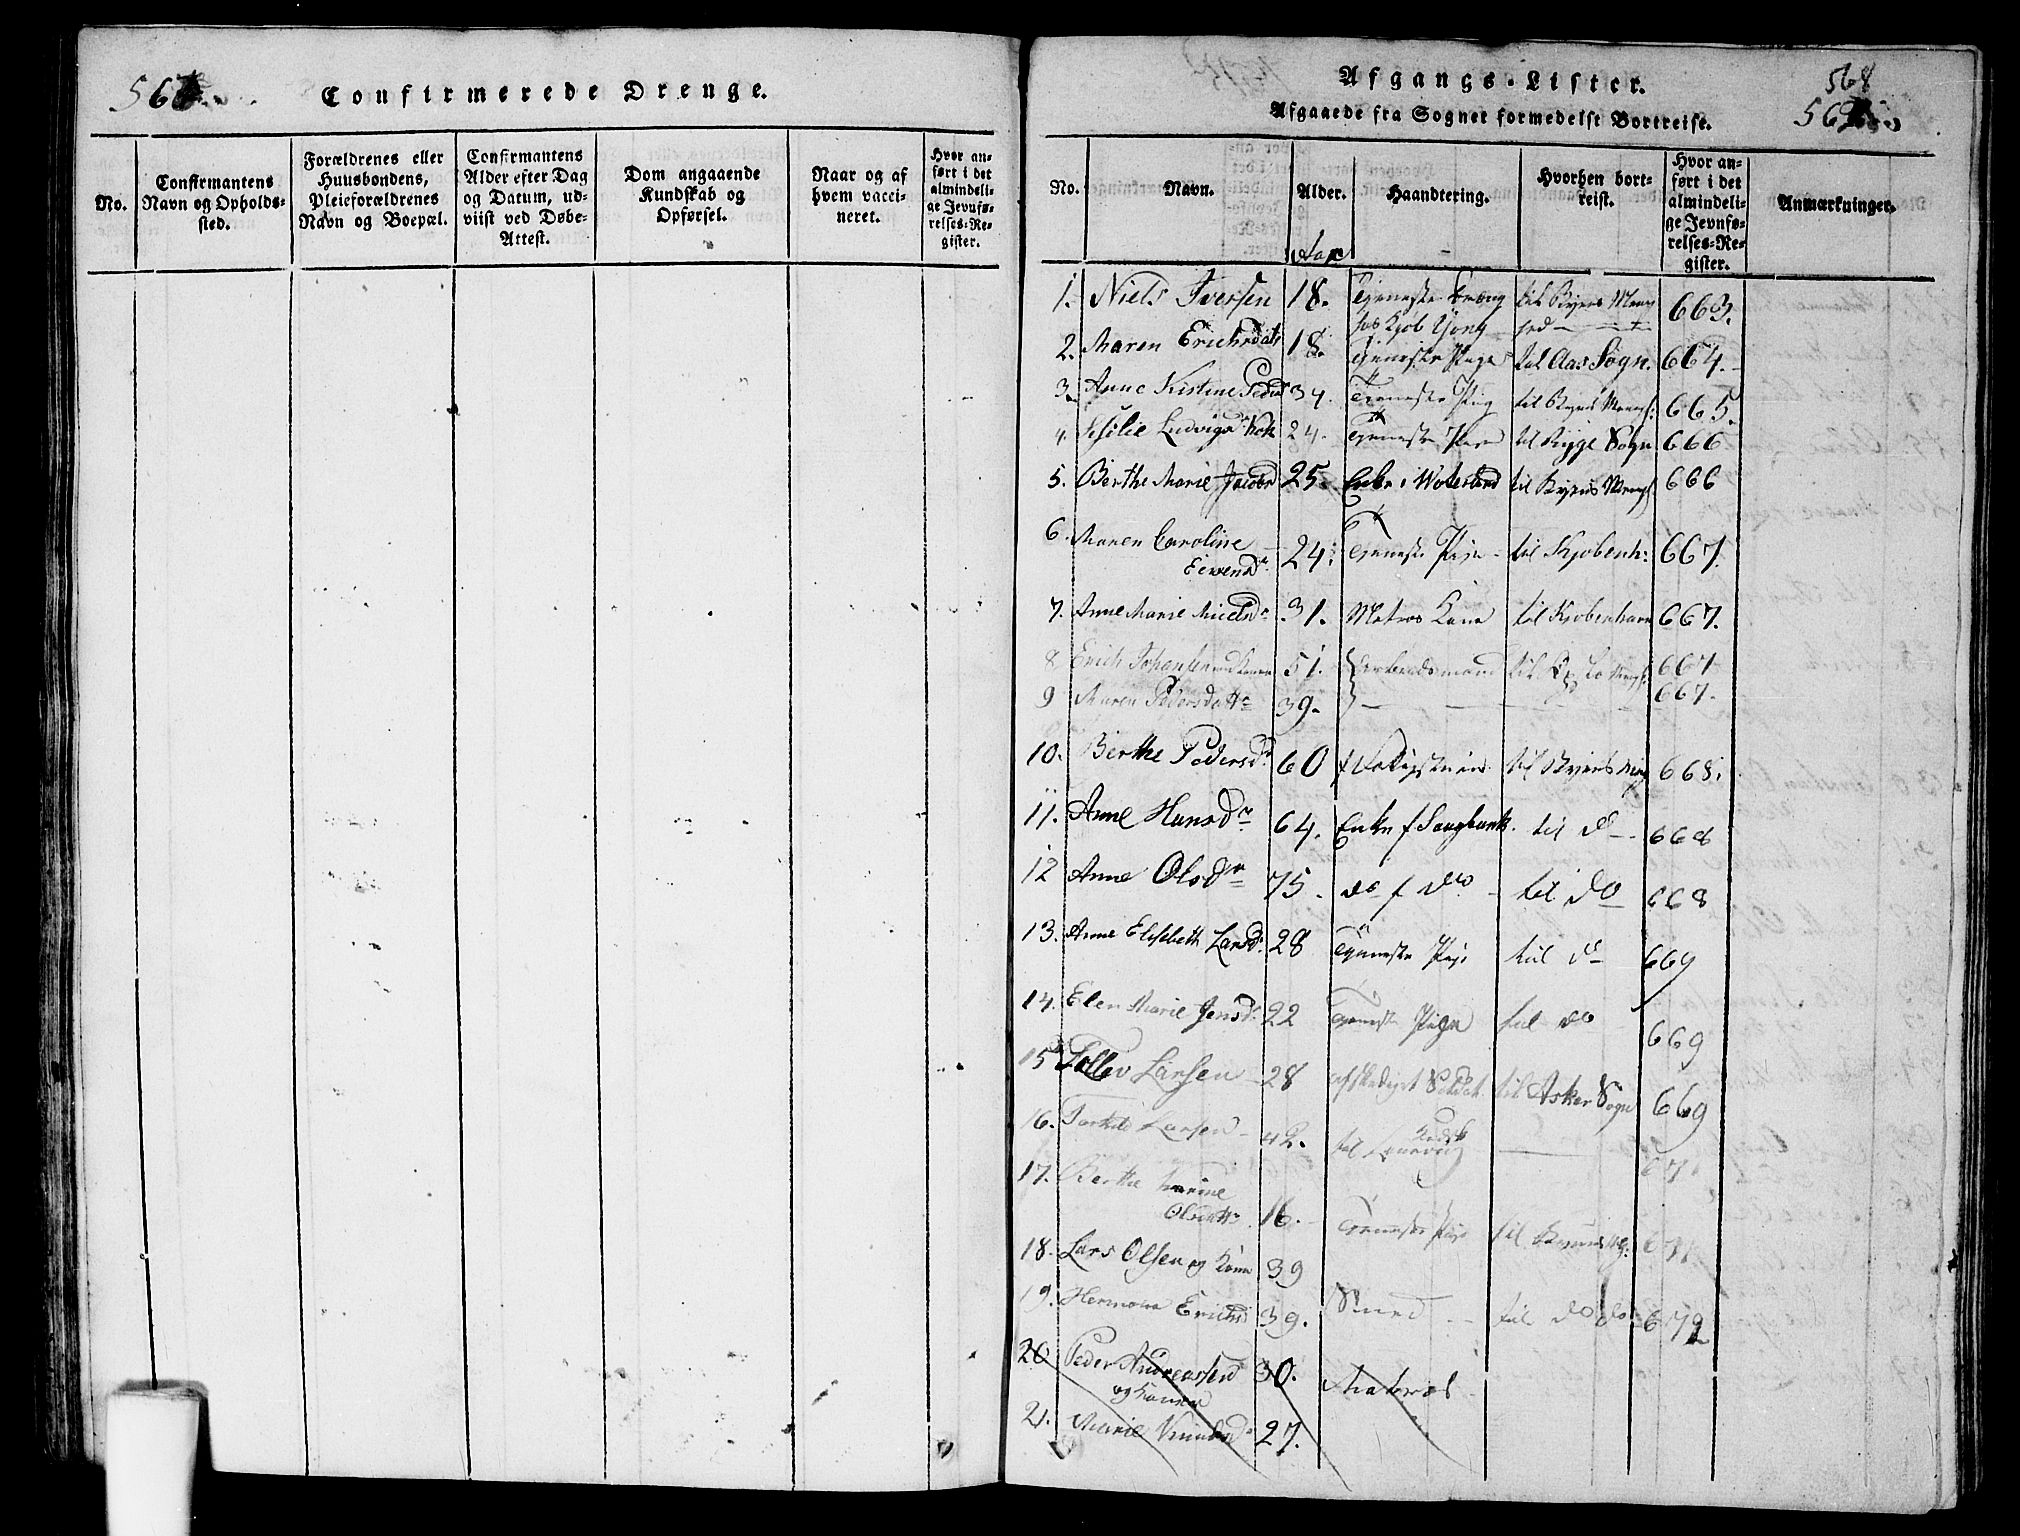 567
Confirmerede Drenge.
No.
Confirmantens Navn og Opholds-sted.
Forældrenes eller Huusbondens, Pleieforældrenes Navn og Boepæl.
Confirmantens Alder efter Dag og Datum, ud-viist ved Døbe-Attest.
Dom angaaende Kundskab og Opførsel.
Naar og af hvem vacci-neret.
Hvor an-ført i det almindeli-ge Jevnfø-relses-Re-gister.
568
Afgangs-Lister.
Afgaaede fra Sognet formedelst Bortreise.
No.
Navn.
Alder.
Haandtering.
Hvorhen bort-reist.
Hvor an-ført i det almindeli-ge Jevnfø-relses-Re-gister.
Anmærkninger.
Aar
1. Niels Iversen 18. Tjeneste Dreng til Byens Meng 663.
hos Kjøb
2. Maren Erichsdatt 18. Tjeneste Pige til Aas Sogn. 664.
3. Anne Kistine Peds 34. Tjeneste Pig til Byens Mengh: 665.
4. Ludvigs 24. Tjeneste Pige til Rygge Sogn 666
5. Berthe Marie Jacobsd 25. Enke i til Byens Mengh 666
6. Maren Caroline 24. Tjeneste Pige til Kjøbenh: 667.
7. Anne Marie Nielsd 31. Matros Kone til Kjøbenhavn 667.
8 Erich Johansen med konen 51. Arbeidsmand til 667
9 Maren Pedersdatt 39. 667.
10. Berthe Pedersd 60 til Byens Meng 668.
11. Anne Hansd 64. Enke f Saugbank. til do 668
12 Anne Olsd 75. do f do til do 668
13. Anne Elisebeth Larsd 28 Tjeneste Pige til do 669
14. Elen Marie Jensd 22 Tjeneste Pige til do 669
15 Tollev Larsen 28 afskediget Soldat til Asker Sogn 669
16. Larsen 42. til 671
17. Berthe Marine
Olsdatt 16. Tjeneste Pige til Byens M: 671
18. Lars Olsen og Kone 39
19. Erichs 39. Smed til do do 672
20 Peder Andreassen 30. Matros
og konen
21. Marie 27.